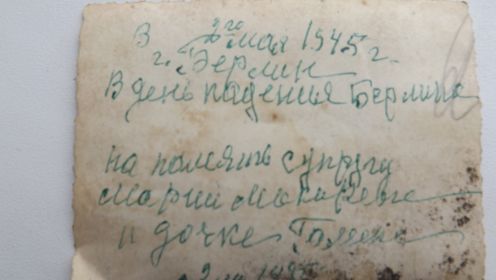 В 2го мая 1945 г.
г. Берлин
В день паденья Берлина
на память супруги
Марии Макаровне
и дочке Галине